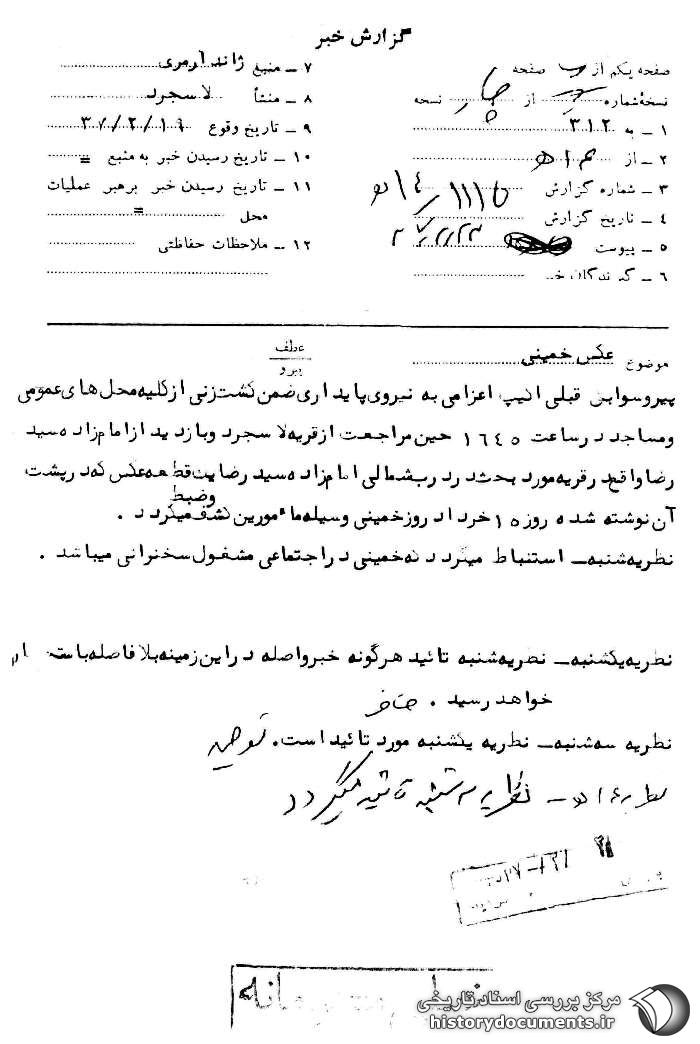 گزارش خبر
صفحه یکم از صفحه
نسخه شماره از چهار نسخه
۱ – به ۳۱۲
۲ – از
۳ – شماره گزارش
۴ – تاریخ گزارش
۵ – پیوست
۶ – گیرندگان خبر
۷ – منبع ژاندارمری
۸ – منشأ لاسجرد
۹ – تاریخ وقوع ۳۷/۲/۱۹
۱۰ – تاریخ رسیدن خبر به منبع =
۱۱ – تاریخ رسیدن خبر برهبر عملیات
محل =
۱۲ – ملاحظات حفاظتی
موضوع عکس خمینی
عطف
پیرو
پیرو سوابق قبلی اکیپ اعزامی به نیروی پایداری ضمن گشت زنی از کلیه محل های عمومی
و مساجد در ساعت ۱۶۴۵ حین مراجعت از قریه لاسجرد و بازدید از امام زاده سید
رضا واقع در قریه مورد بحث در درب شمالی امام زاده سید رضا یک قطعه عکس که در پشت
آن نوشته شده روز ۱۵ خرداد روز خمینی وسیله مأمورین کشف و ضبط میگردد .
نظریه شنبه – استنباط میگردد که خمینی در اجتماعی مشغول سخنرانی میباشد .
نظریه یکشنبه – نظریه شنبه تائید هرگونه خبر واصله در این زمینه بلافاصله باستحضار
خواهد رسید .
نظریه سه شنبه – نظریه یکشنبه مورد تائید است.
نظریه سه شنبه تائید میگردد
مرکز بررسی اسناد تاریخی
historydocuments.ir